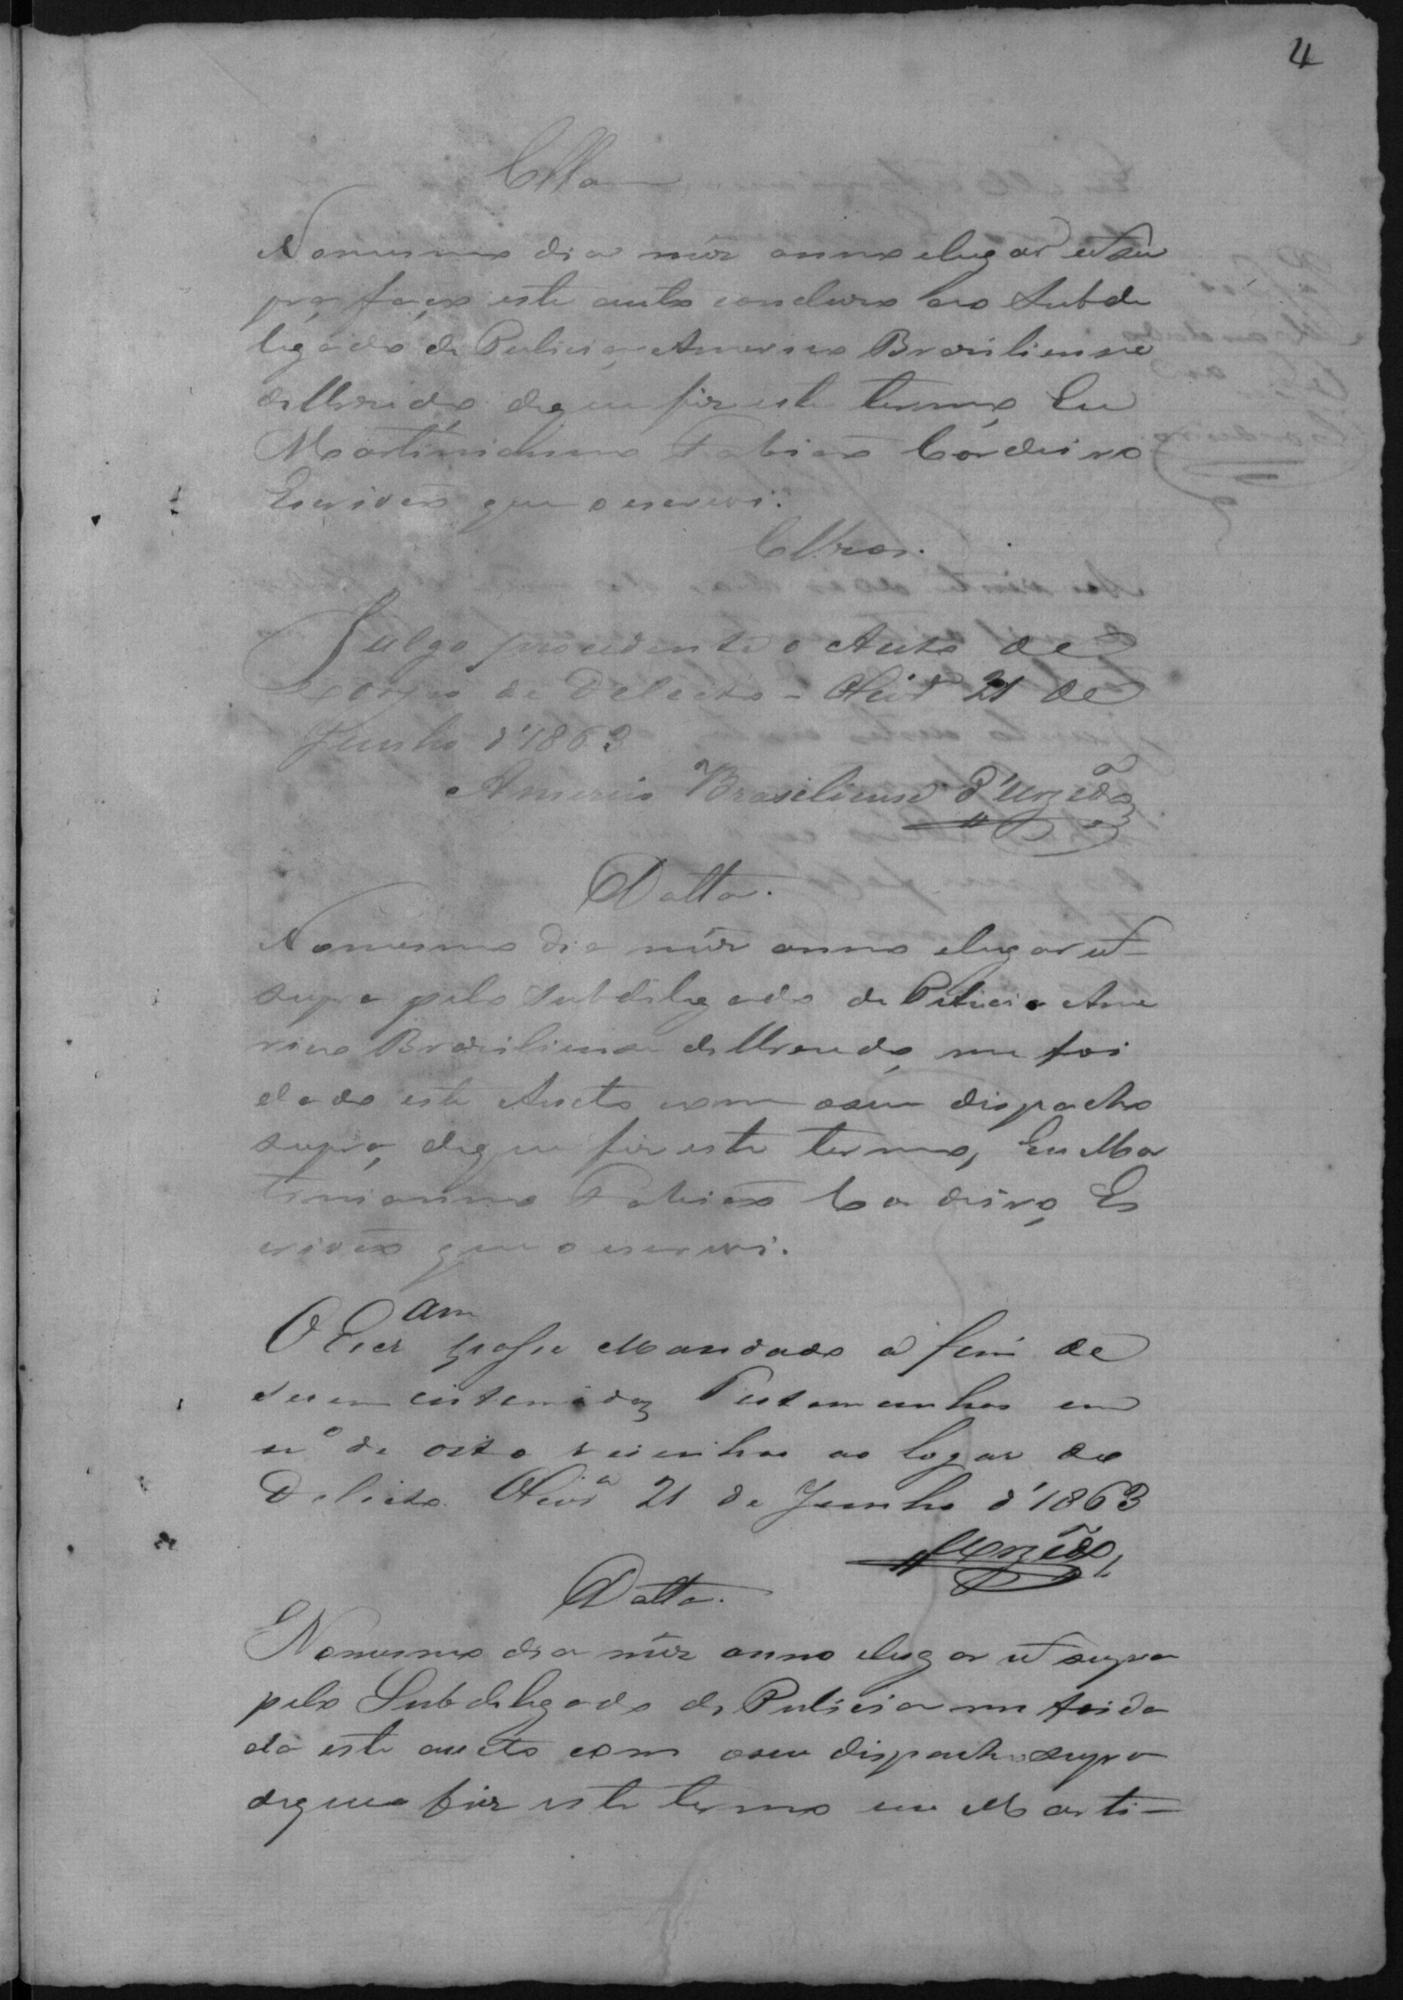 4
Cllam
Nomesmo dia mêz anno elugar utsu
pra, faço este auto concluzo ao Subde
legado de Policia, Americo Braziliense
Nomesmo
dia
de que fiz este termo, Eu
Martinianno Fabião Cordeiro
Escrivão que o escrevi.
Cllzos.
Julgo procedente o Auto de
Corpo de Delicto - 21 de
Junho d'1863
Americo Brasiliense d'Urzêdo
Datta.
Nomesmo dia mêz anno elugar ut
supra pelo Subdelegado de Policia Ame
rico Braziliense dUrzedo, me foi
dado este Aucto com oseu dispacho
supra, deque fiz este termo, Eu Mar
tinianno Fabião Cordeiro, Es
crivão que o escrevi.
O Escr.am passe Mandado a fim de
serem Testemunhas em
nº de oito vesinhas ao logar do
Delicto. 21 de Junho d'1863
Urzêdo
Datta.
Nomesmo dia mêz anno elugar ut supra
pelo Subdelegado de Policia me foi da
do este aucto com oseu dispacho supra
deque fiz este termo eu Marti-